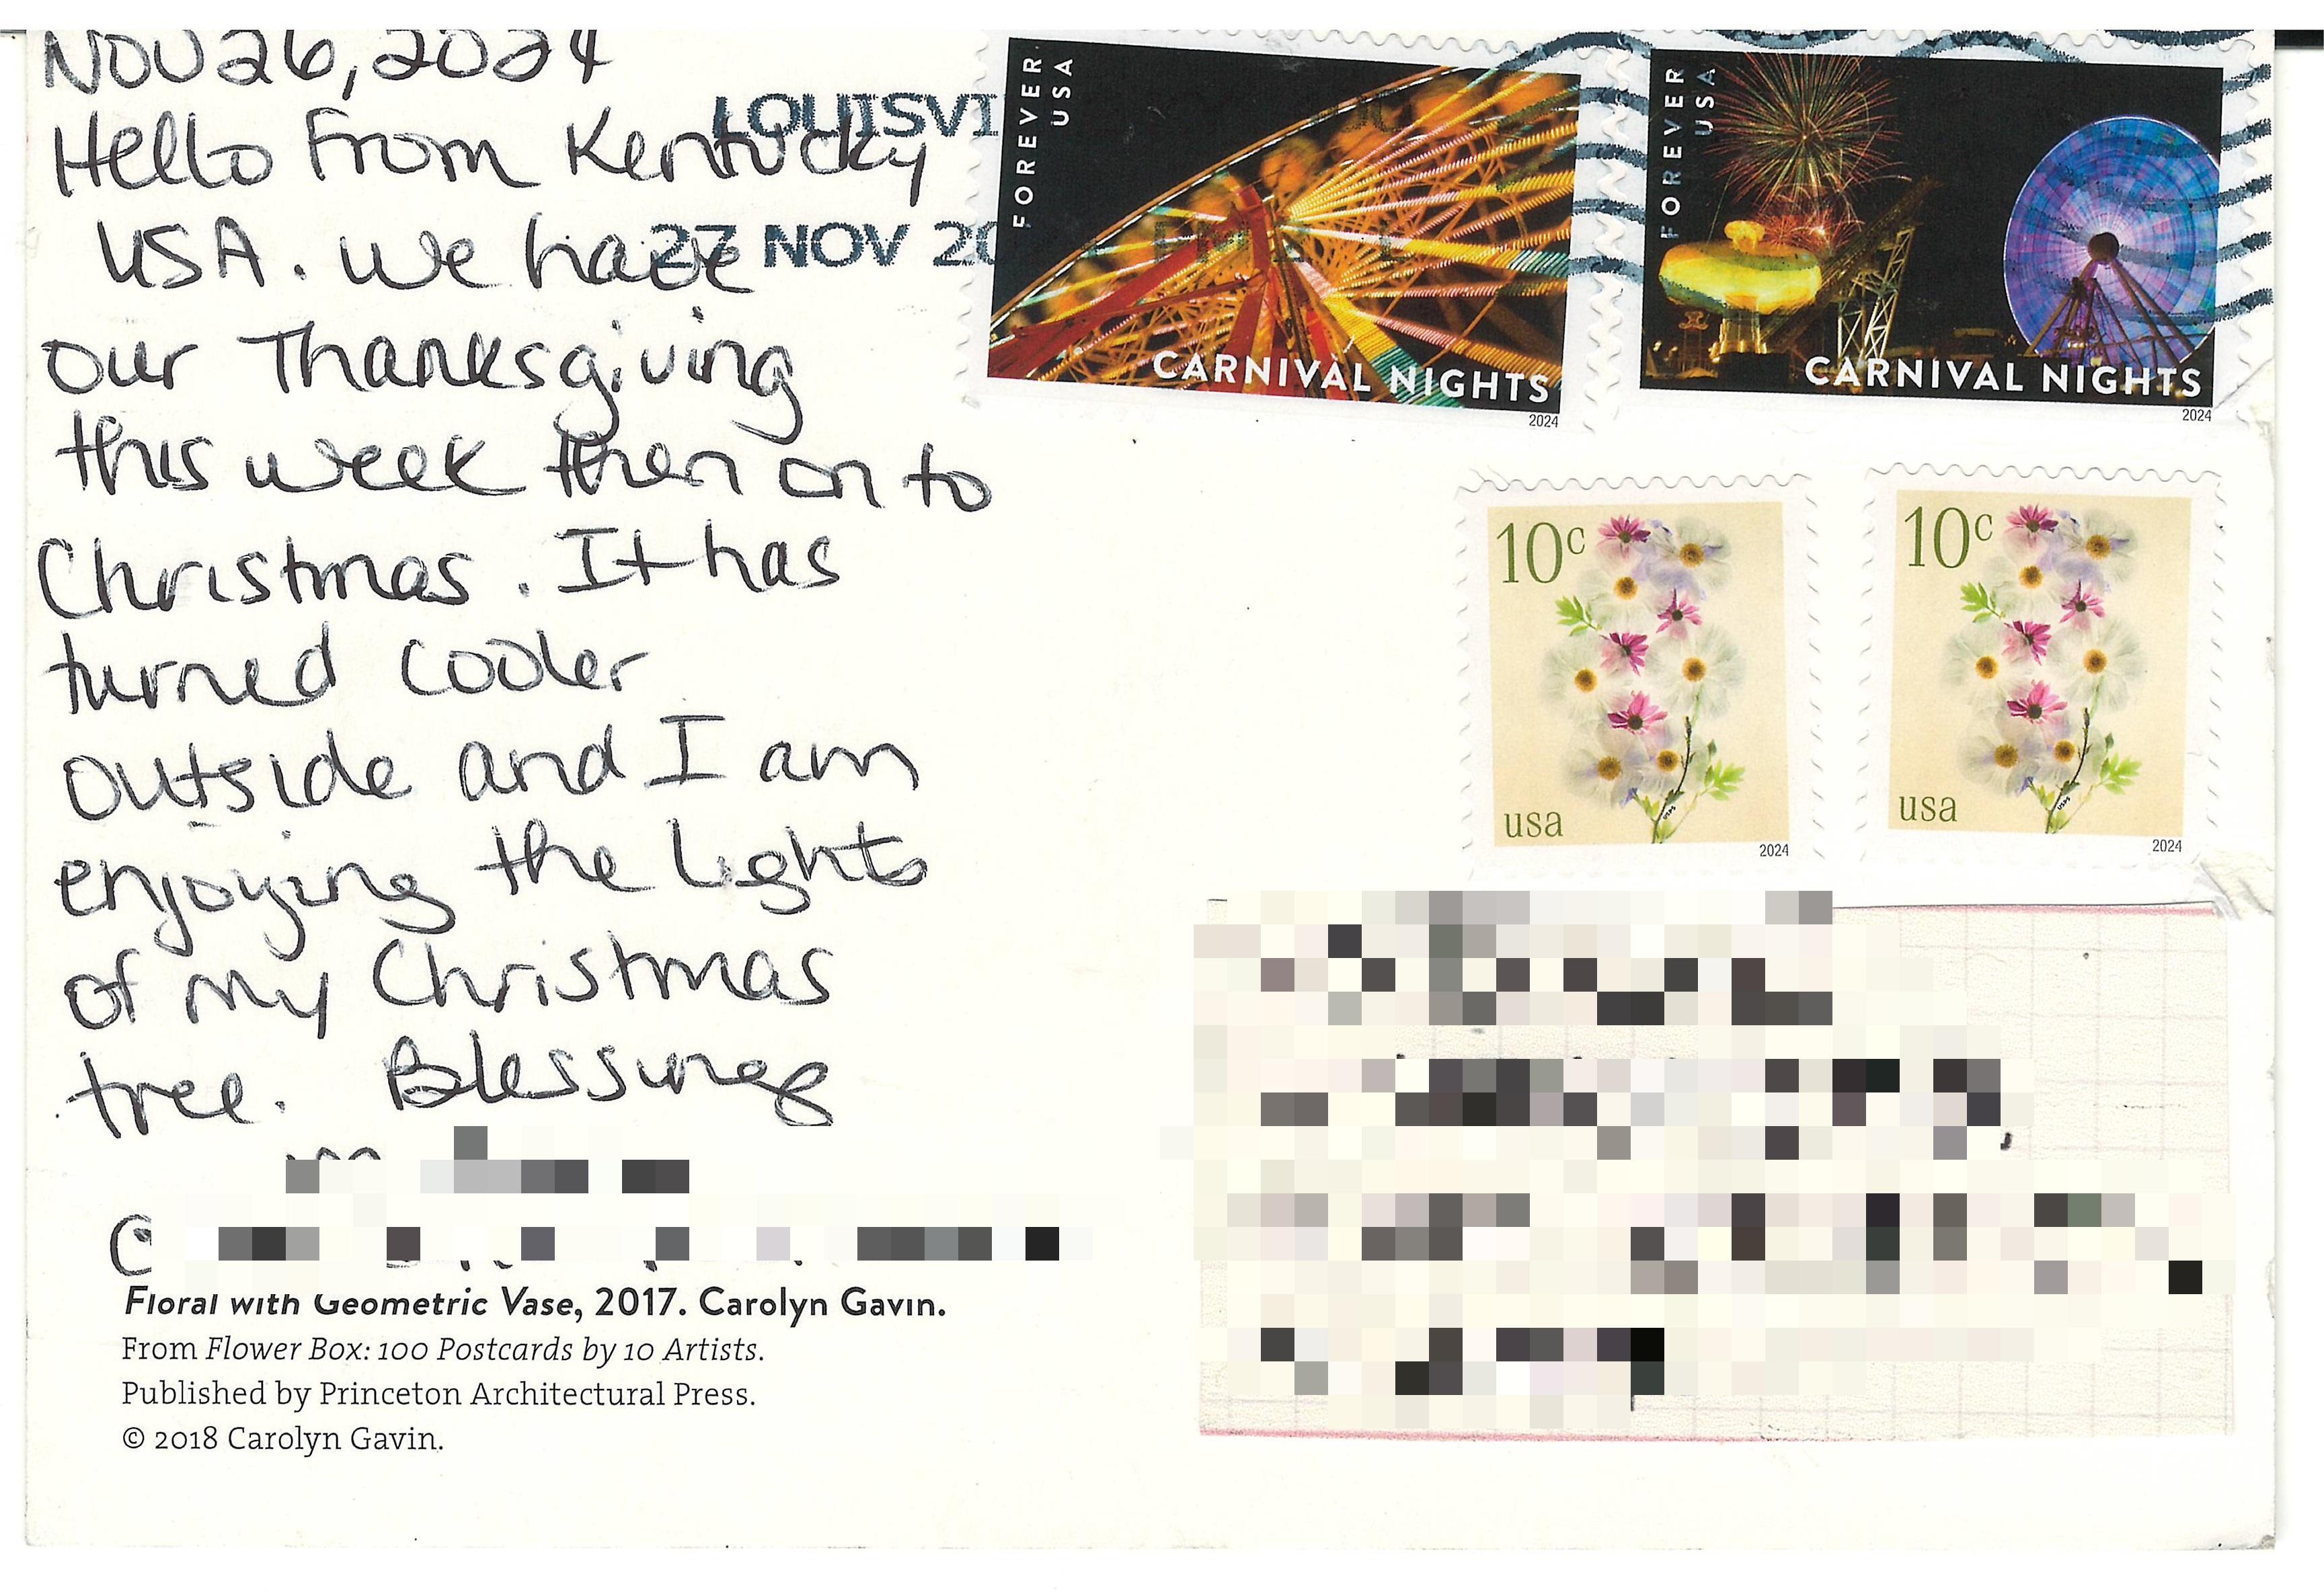 Nov 26, 2024
Hello From Kentucky
USA. We have
our Thanksgiving
this week then on to
Christmas. It has
turned cooler
outside and I am
enjoying the lights
of my Christmas
tree. Blessings
Floral with Geometric Vase, 2017. Carolyn Gavin.
From Flower Box: 100 Postcards by 10 Artists.
Published by Princeton Architectural Press.
© 2018 Carolyn Gavin.
LOUISVI
27 NOV 20
FOREVER
USA
CARNIVAL NIGHTS
2024
FOREVER
USA
CARNIVAL NIGHTS
2024
10c
usa
2024
10c
usa
2024